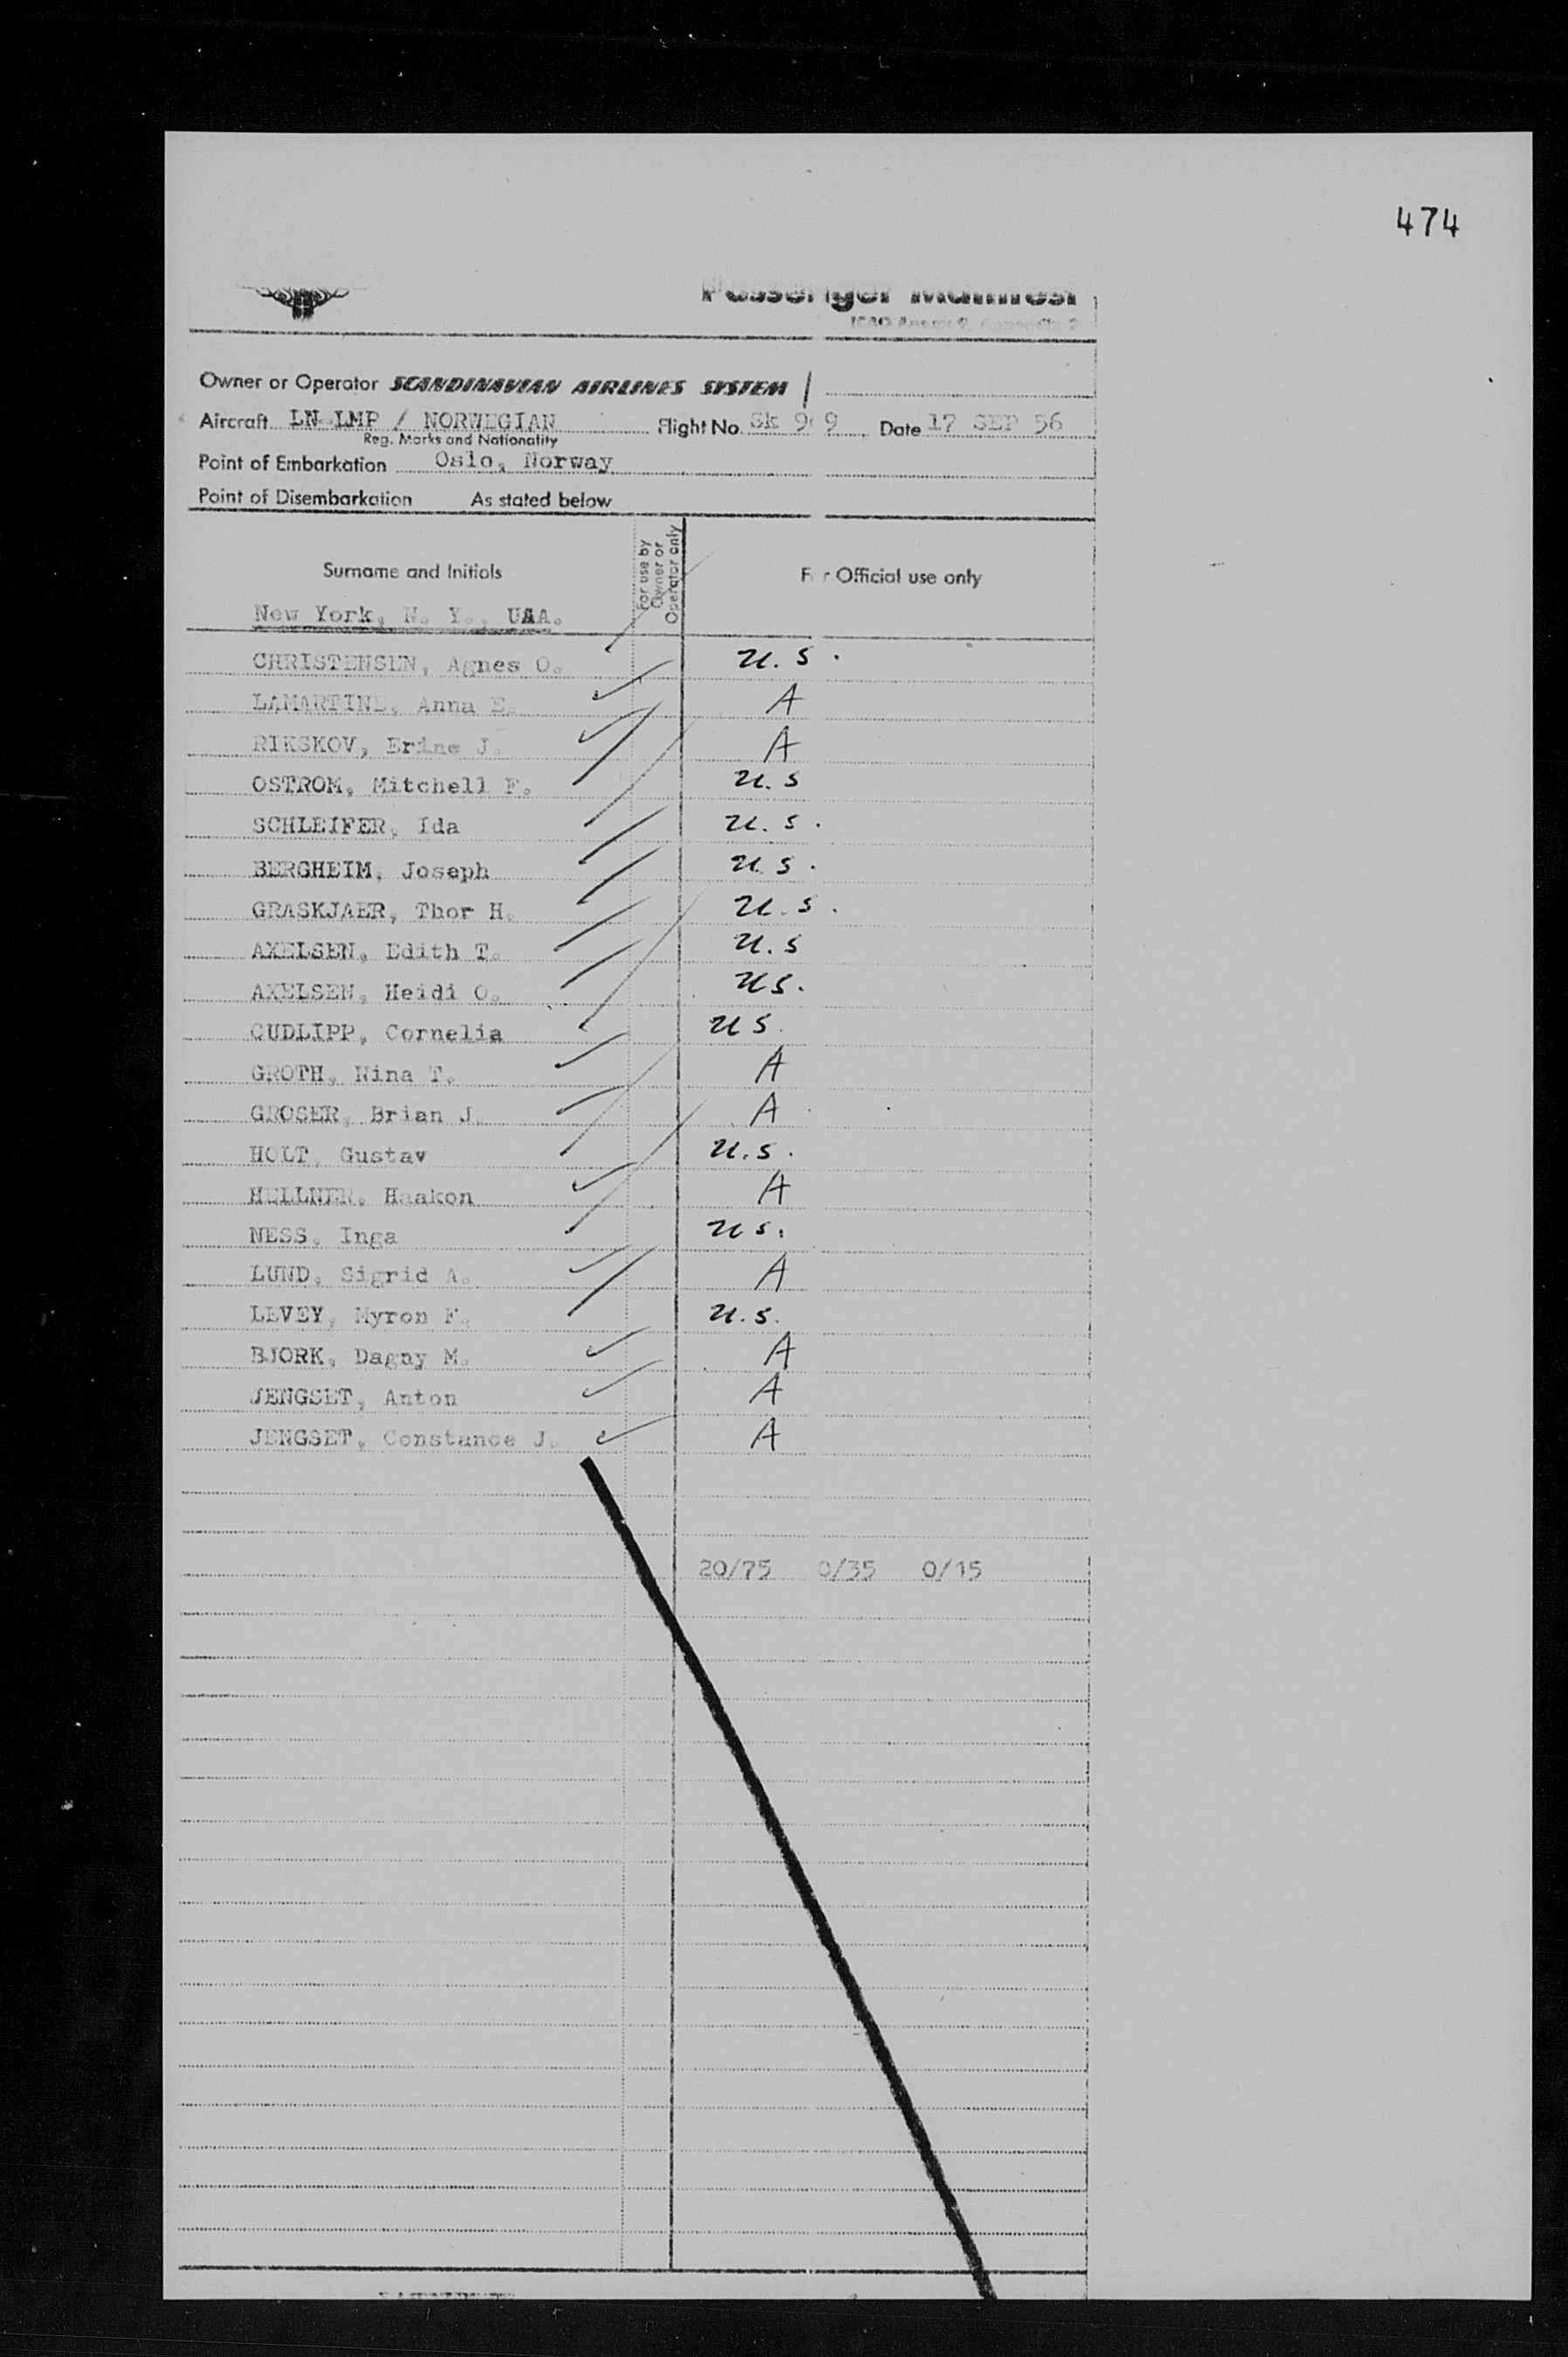 474
Passenger Manifest
ICAO Annex 9, Appendix 2
Owner or Operator SCANDINAVIAN AIRLINES SYSTEM
Aircraft LN-LMP / NORWEGIAN Flight No. Sk 9 9 Date 17 SEP 56
Reg. Marks and Nationality
Point of Embarkation Oslo, Norway
Point of Disembarkation As stated below
Surname and Initials For use by Owner or Operator only For Official use only
New York, N. Y., UAA.
CHRISTENSEN, Agnes O. U.S.
LAMARTINE, Anna E. A
RIKSKOV, Erine J. A
OSTROM, Mitchell F. U.S
SCHLEIFER, Ida U.S.
BERGHEIM, Joseph U.S.
GRASKJAER, Thor H. U.S.
AXELSEN, Edith T. U.S
AXELSEN, Heidi O. US.
CUDLIPP, Cornelia US.
GROTH, Nina T. A
GROSER, Brian J. A
HOLT, Gustav U.S.
HELLNER, Haakon A
NESS, Inga US.
LUND, Sigrid A. A
LEVEY, Myron F. U.S.
BJORK, Dagny M. A
JENGSET, Anton A
JENGSET, Constance J. A
20/75 0/35 0/15